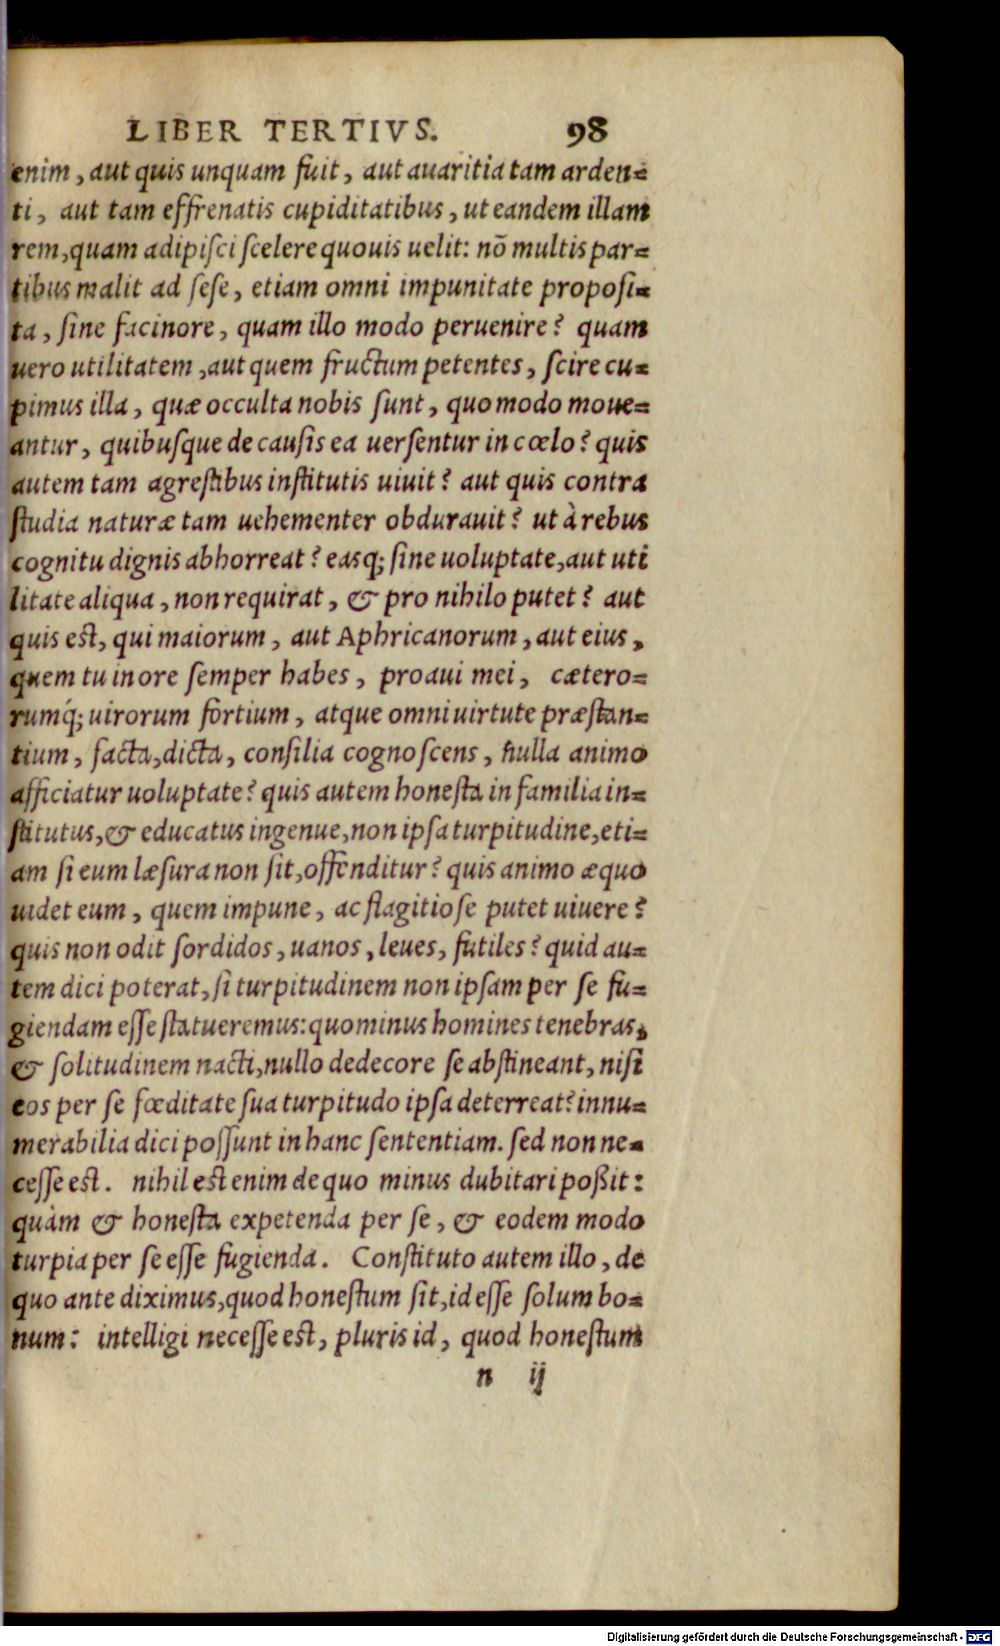 LIBER TERTIVS. 98
enim, aut quis unquam fuit, aut auaritia tam arden=
ti, aut tam effrenatis cupiditatibus, ut eandem illam
rem, quam adipiſci ſcelere quouis uelit: nõ multis par=
tibus malit ad ſeſe, etiam omni impunitate propoſi=
ta, ſine facinore, quam illo modo peruenire? quam
uero utilitatem, aut quem fructum petentes, ſcire cu=
pimus illa, quæ occulta nobis ſunt, quo modo moue=
antur, quibuſque de cauſis ea uerſentur in cœlo? quis
autem tam agreſtibus inſtitutis uiuit? aut quis contra
ſtudia naturæ tam uehementer obdurauit? ut à rebus
cognitu dignis abhorreat? easq; ſine uoluptate, aut uti
litate aliqua, non requirat, & pro nihilo putet? aut
quis eſt, qui maiorum, aut Aphricanorum, aut eius,
quem tu in ore ſemper habes, proaui mei, cætero=
rumq́; uirorum fortium, atque omni uirtute præſtan=
tium, facta, dicta, conſilia cognoſcens, nulla animo
afficiatur uoluptate? quis autem honeſta in familia in=
ſtitutus, & educatus ingenue, non ipſa turpitudine, eti=
am ſi eum læſura non ſit, offenditur? quis animo æquo
uidet eum, quem impune, ac flagitioſe putet uiuere?
quis non odit ſordidos, uanos, leues, futiles? quid au=
tem dici poterat, ſi turpitudinem non ipſam per ſe fu=
giendam eſſe ſtatueremus: quo minus homines tenebras,
& ſolitudinem nacti, nullo dedecore ſe abſtineant, niſi
eos per ſe fœditate ſua turpitudo ipſa deterreat? innu=
merabilia dici poſſunt in hanc ſententiam. ſed non ne=
ceſſe eſt. nihil eſt enim de quo minus dubitari poßit:
quàm & honeſta expetenda per ſe, & eodem modo
turpia per ſe eſſe fugienda. Conſtituto autem illo, de
quo ante diximus, quod honeſtum ſit, id eſſe ſolum bo=
num: intelligi neceſſe eſt, pluris id, quod honeſtum
n ij
Digitalisierung gefördert durch die Deutsche Forschungsgemeinschaft - DFG